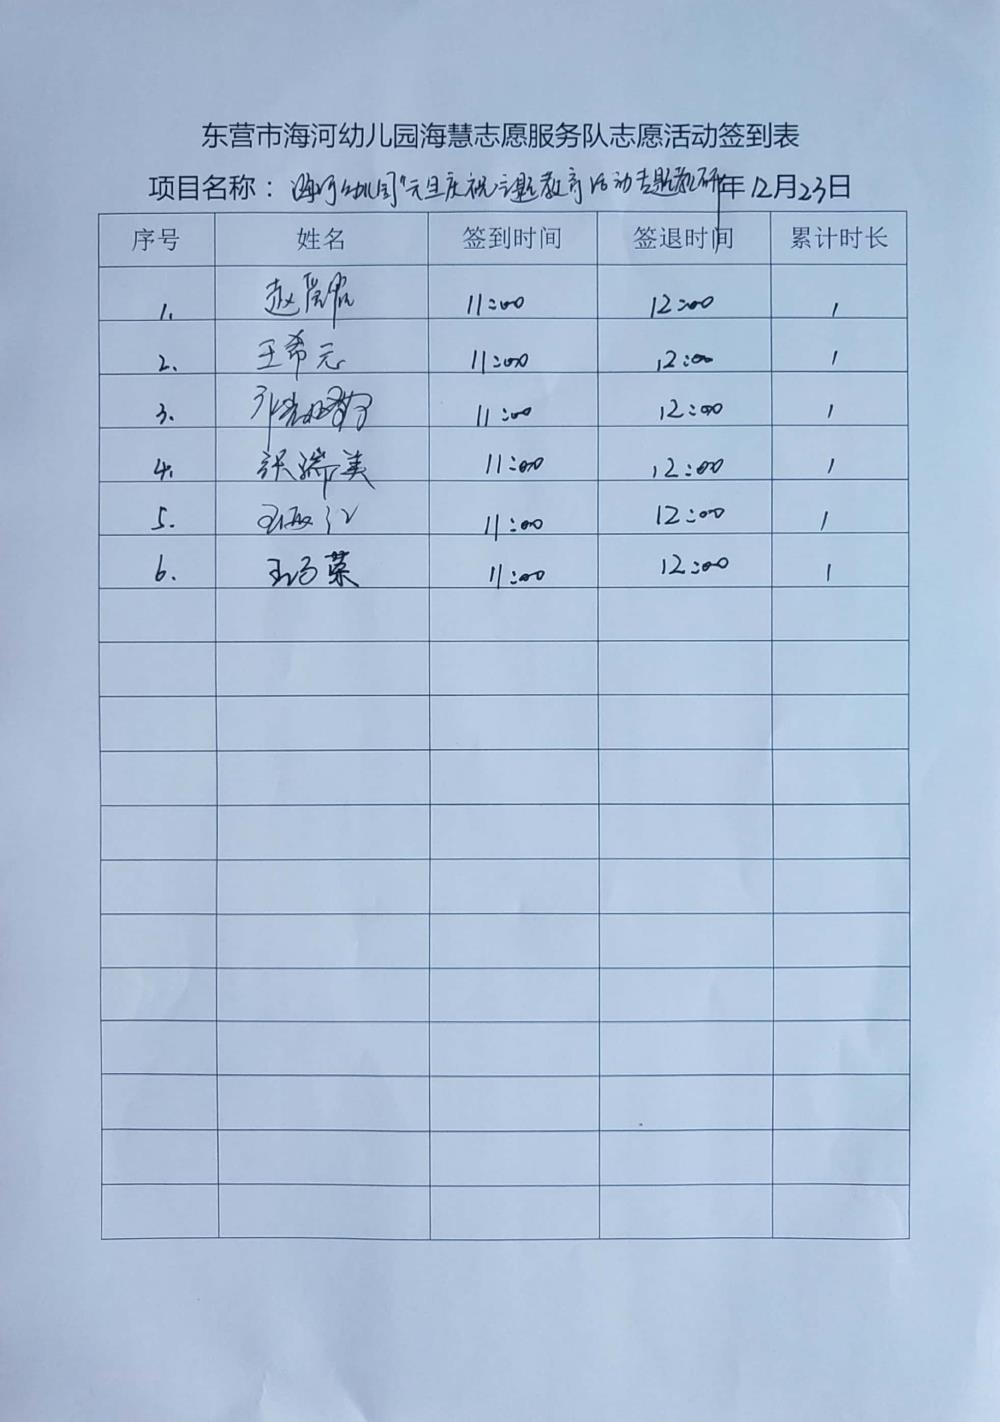 东营市海河幼儿园海慧志愿服务队志愿活动签到表
项目名称：海河幼儿园"元旦庆祝"主题教育活动专题教研 年12月23日
序号 姓名 签到时间 签退时间 累计时长
1. 赵 11:00 12:00 1
2. 王希元 11:00 12:00 1
3. 11:00 12:00 1
4. 张瑞美 11:00 12:00 1
5. 11:00 12:00 1
6. 11:00 12:00 1